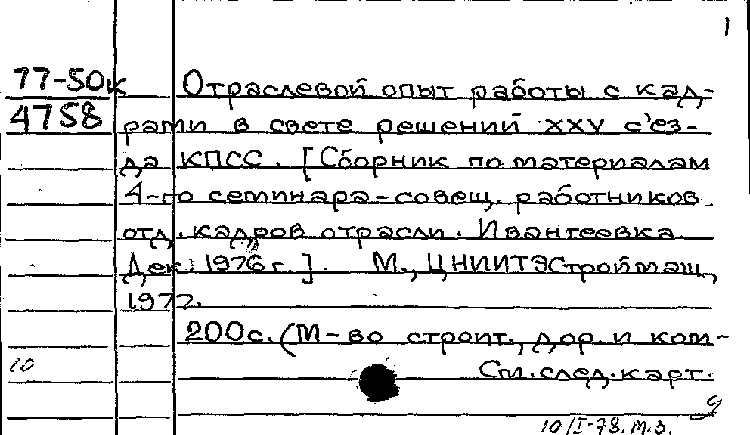 1
77-50к Отраслевой опыт работы с кад-
4758 рами в свете решений XXV с'ез-
да КПСС. [Сборник по материалам
4-го семинара-совещ. работников
отд. кадров отрасли. Ивантеевка
Дек. 1976 г.]. М., ЦНИИТЭСтроймаш,
1977.
200с. (М-во строит., дор. и ком-
10 См. след. карт.
9
10/I-78. М.З.